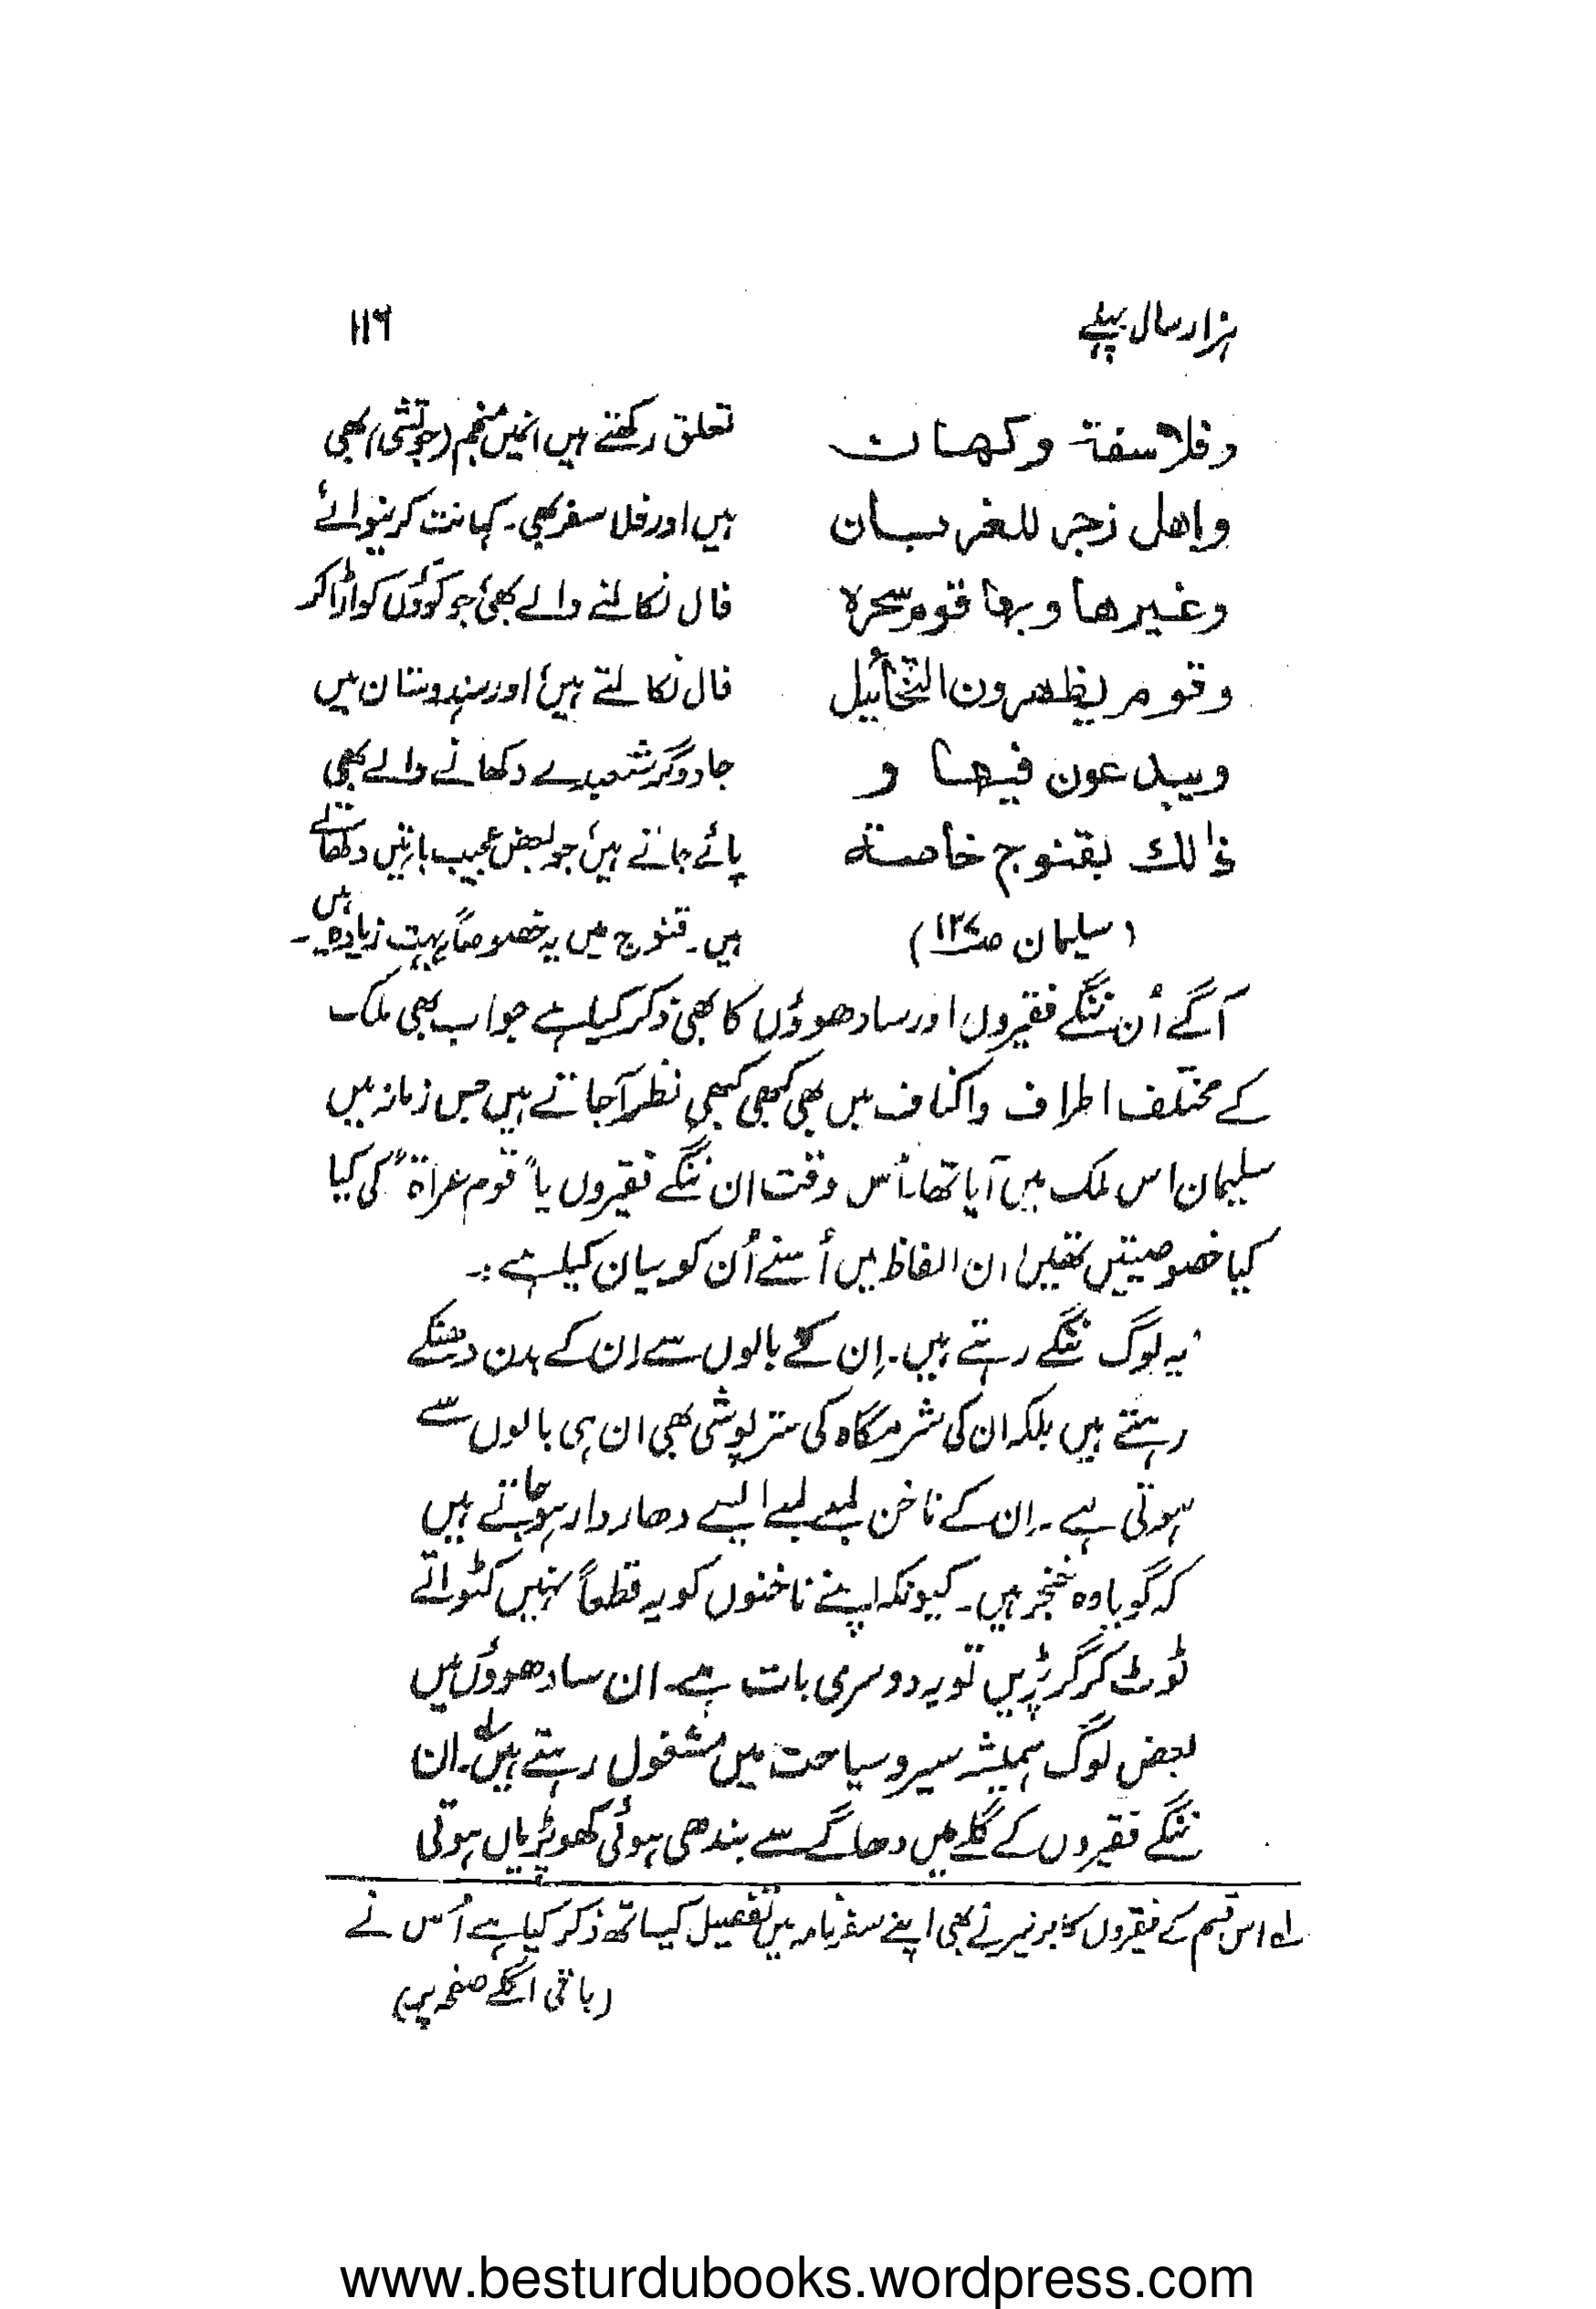 ہزار سال پہلے
۱۱۶
وفلاسفة وكهان
واهل زجر للغربان
وغيرها وبها قوم سحرة
وقوم يظهرون التخائيل
ويبدعون فيها و
ذالك بقنوج خاصة
(سلیمان ص۱۲۷)
تعلق رکھتے ہیں انمیں منجم (جوتشی) بھی
ہیں اور فلاسفر بھی۔ کہانت کرنیوالے
فال نکالنے والے بھی جو کوّوں کو اڑا کر
فال نکالتے ہیں اور ہندوستان میں
جادوگر شعبدے دکھانے والے بھی
پائے جاتے ہیں جو بعض عجیب باتیں دکھاتے
ہیں۔ قنوج میں یہ خصوصاً بہت زیادہ ہیں۔
آگے اُن ننگے فقیروں اور سادھوؤں کا بھی ذکر کیا ہے جو اب بھی ملک
کے مختلف اطراف واکناف میں بھی کبھی کبھی نظر آجاتے ہیں جس زمانہ میں
سلیمان اس ملک میں آیا تھا اُس وقت ان ننگے فقیروں یا "قوم عراة" کی کیا
کیا خصوصیتیں تھیں ان الفاظ میں اُسنے اُن کو بیان کیا ہے:۔
یہ لوگ ننگے رہتے ہیں۔ اِن کے بالوں سے ان کے بدن ڈھنکے
رہتے ہیں بلکہ ان کی شرمگاہ کی ستر پوشی بھی ان ہی بالوں سے
ہوتی ہے۔ اِن کے ناخن لمبے لمبے ایسے دھار دار ہو جاتے ہیں
کہ گویا وہ خنجر ہیں۔ کیونکہ اپنے ناخنوں کو یہ قطعاً نہیں کٹواتے
ٹوٹ کر گر پڑیں تو یہ دوسری بات ہے۔ ان سادھووں میں
بعض لوگ ہمیشہ سیر وسیاحت میں مشغول رہتے ہیں۱ے۔ ان
ننگے فقیروں کے گلے میں دھاگے سے بندھی ہوئی کھوپڑیاں ہوتی
۱ے اس قسم کے فقیروں کا برنیر نے بھی اپنے سفرنامہ میں تفصیل کیساتھ ذکر کیا ہے اُس نے
(باقی اگلے صفحہ پر)
www.besturdubooks.wordpress.com